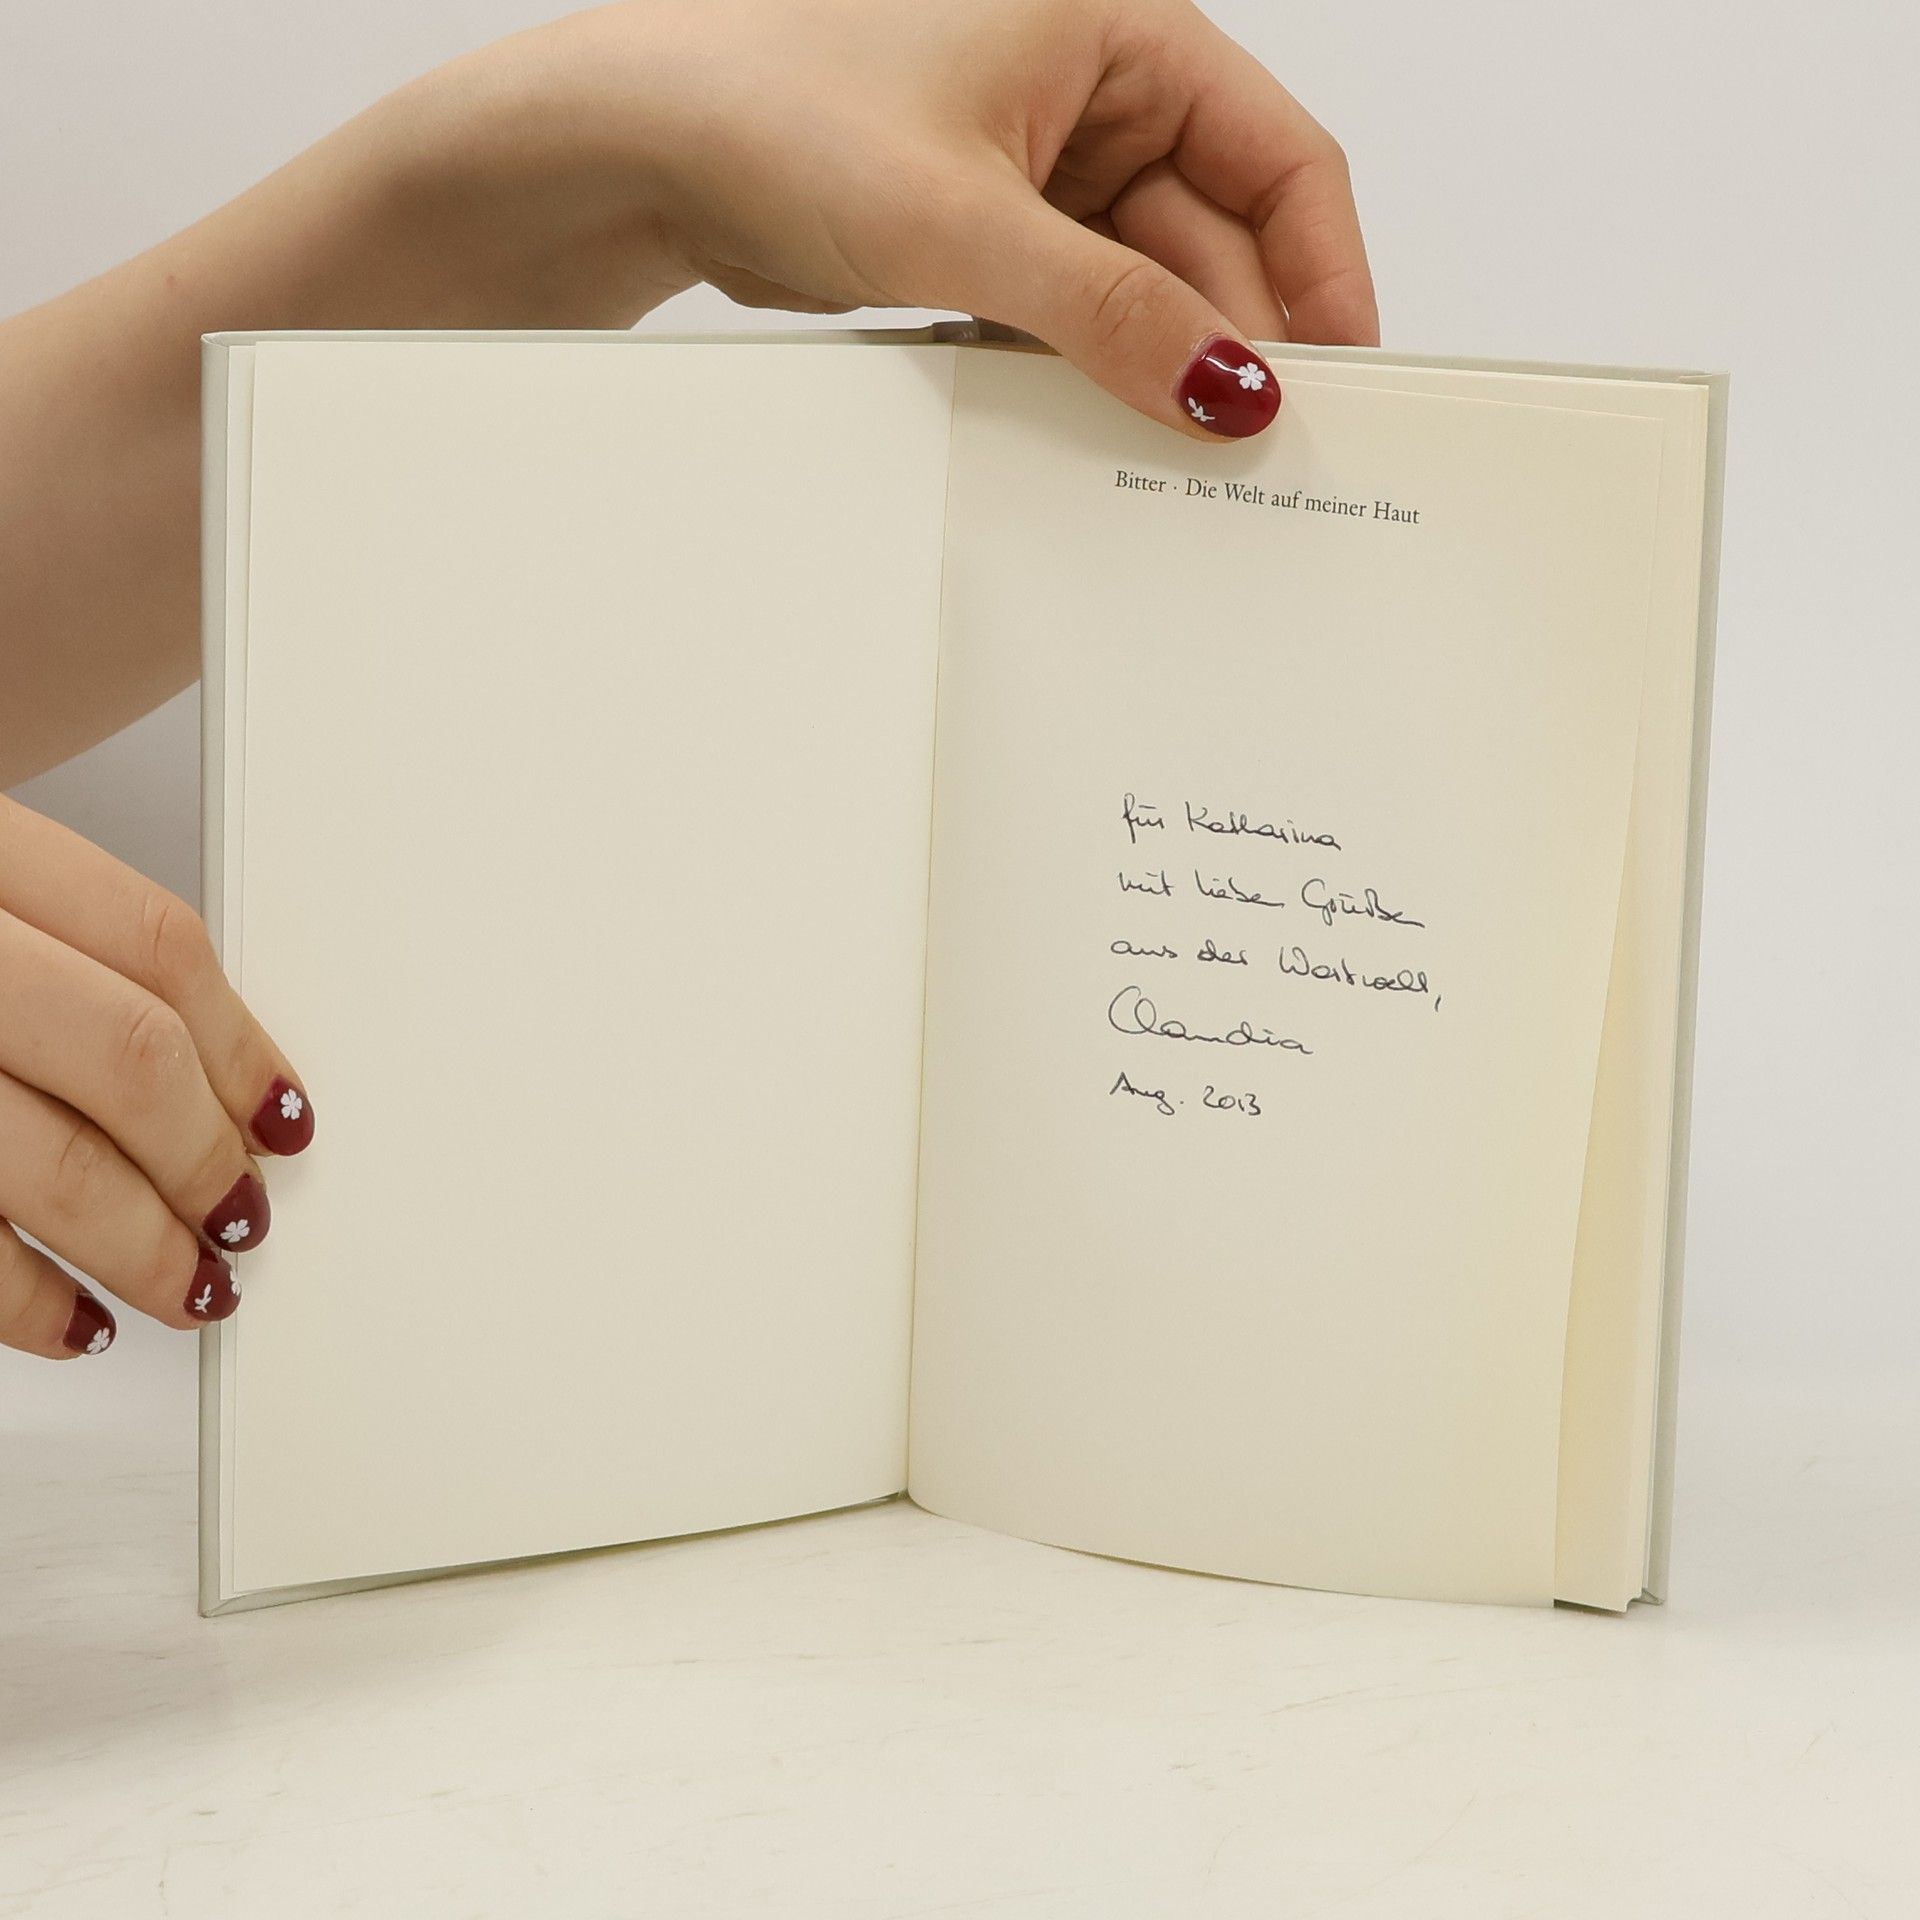 Bitter · Die Welt auf meiner Haut
für Katharina
mit lieben Grüßen
aus der Wortwelt,
Claudia
Aug. 2013